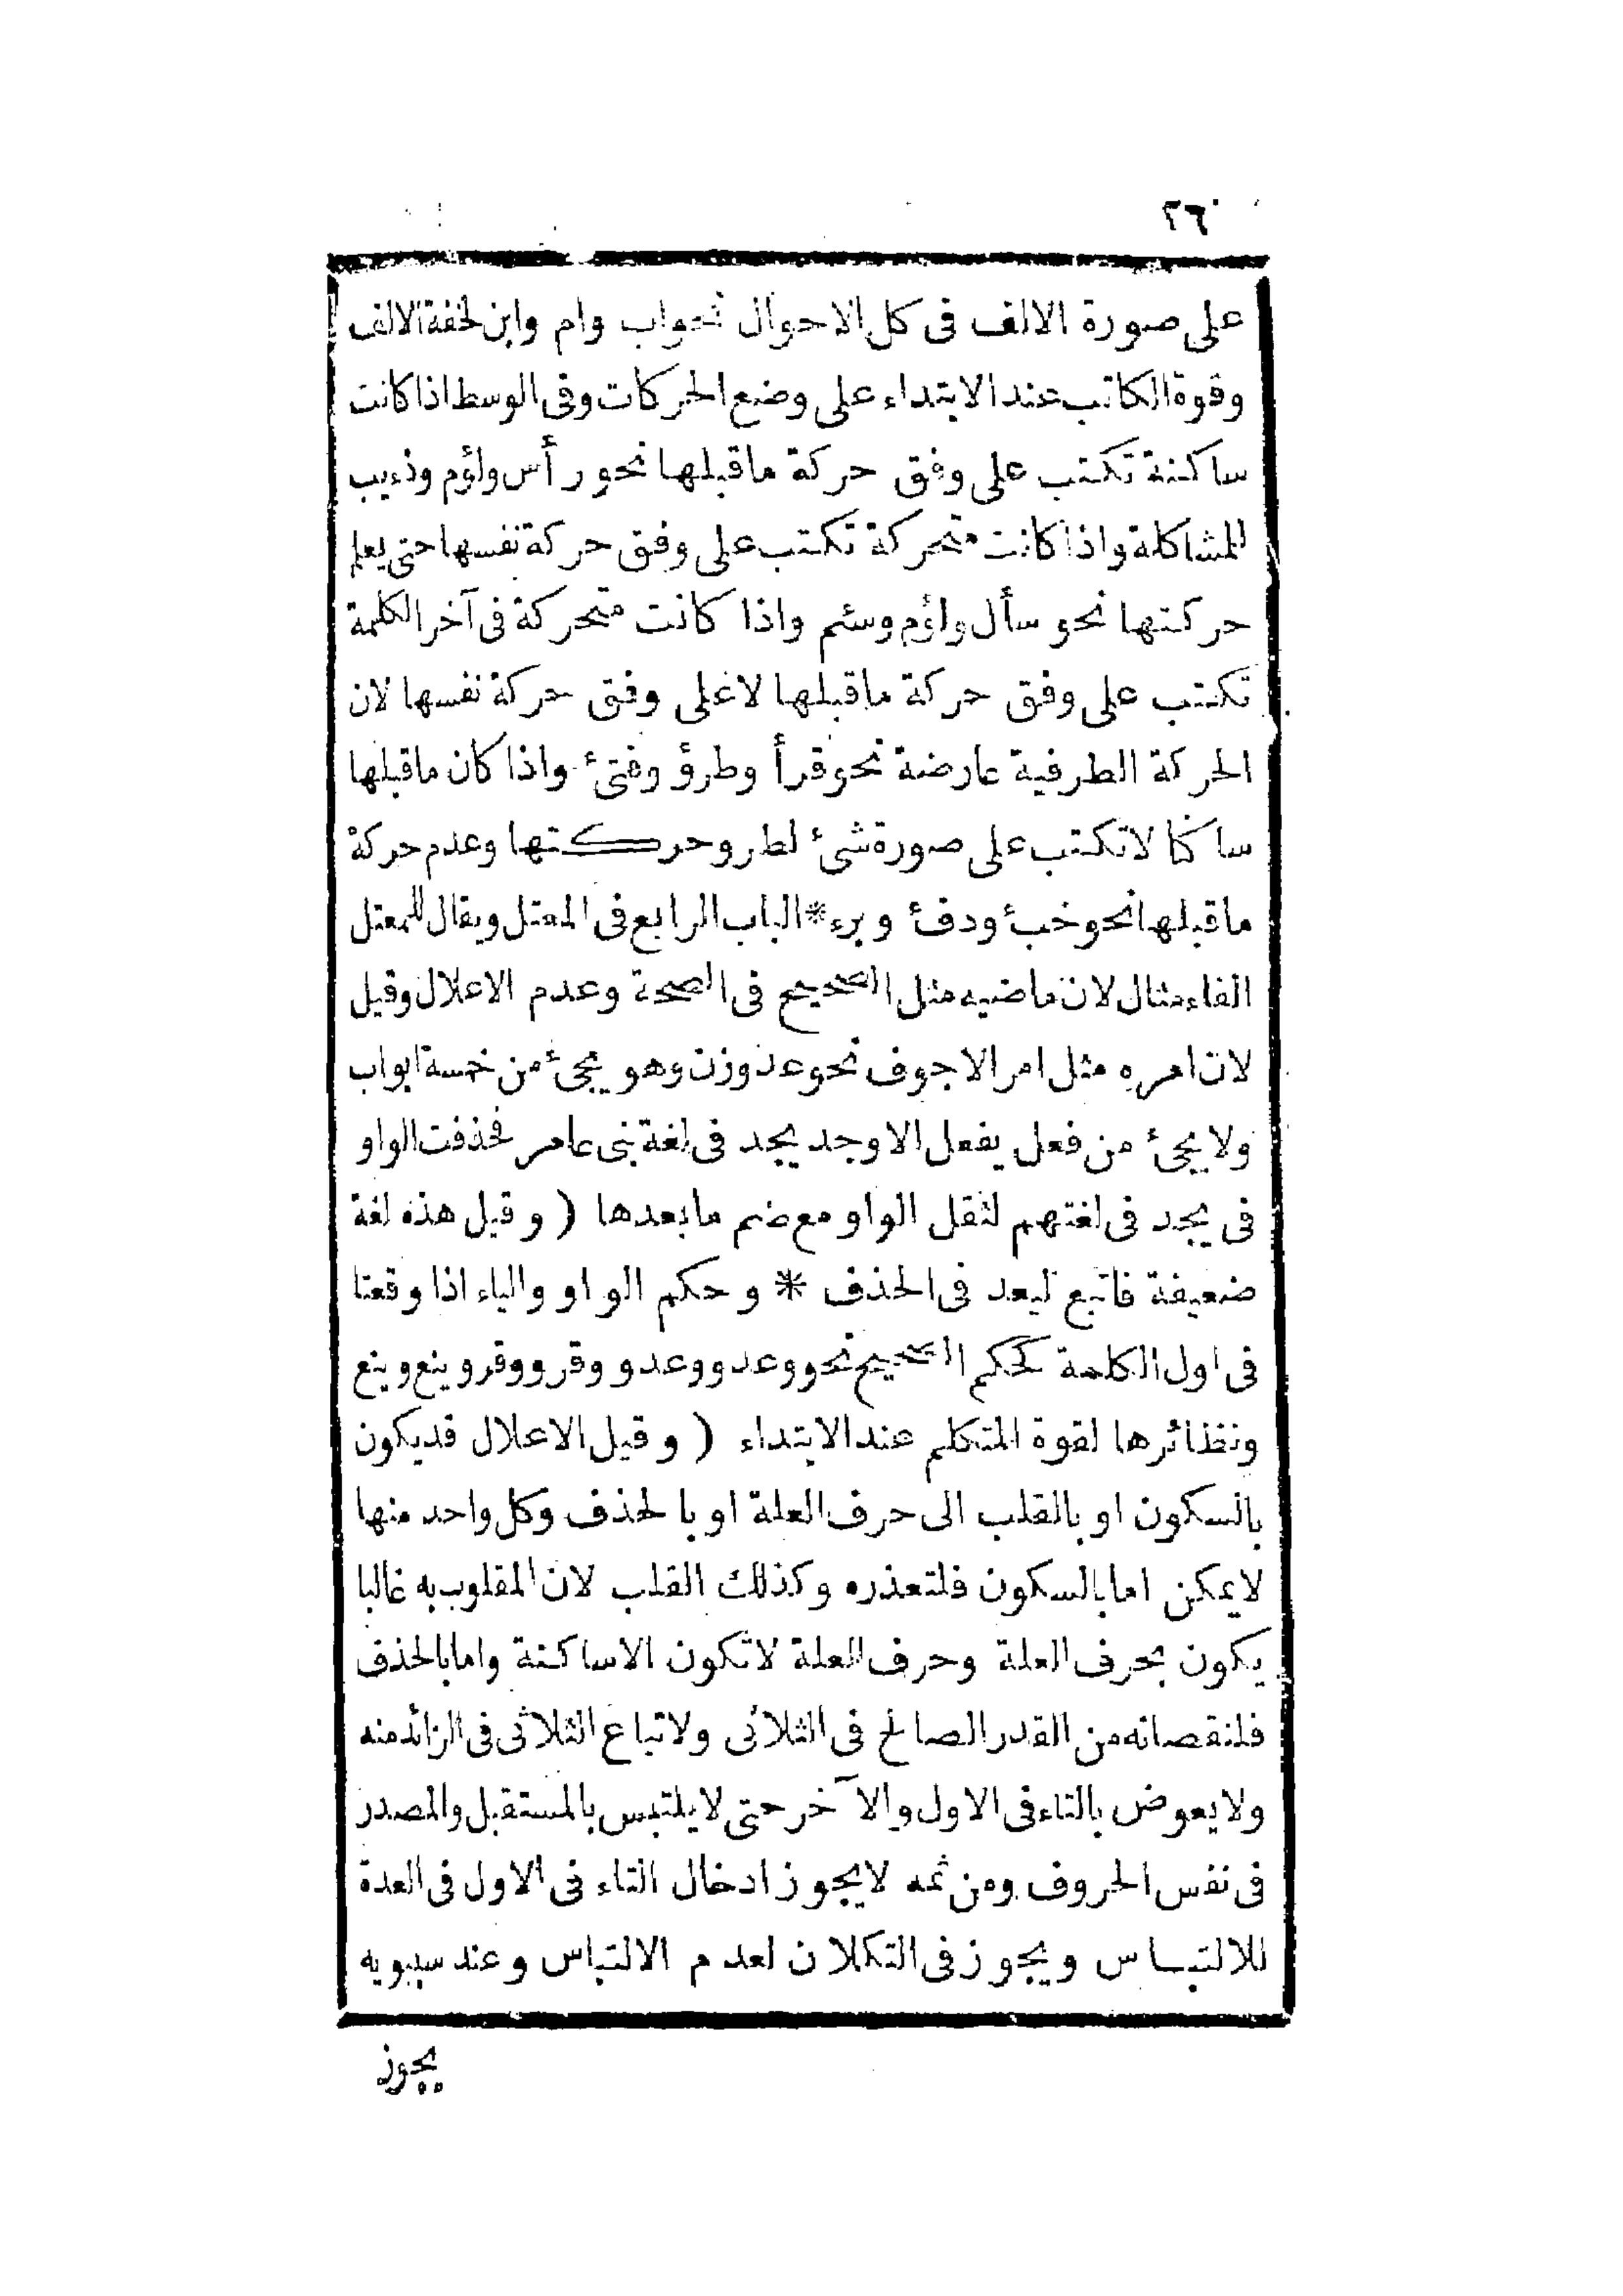 ٢٦
على صورة الالف فى كل الاحوال نحو اب وام وابن لخفة الالف
وقوة الكاتب عند الابتداء على وضع الحركات وفى الوسط اذا كانت
ساكنة تكتب على وفق حركة ما قبلها نحو رأس ولؤم وذءيب
للمشاكلة واذا كانت متحركة تكتب على وفق حركة نفسها حتى يعلم
حركتها نحو سأل ولؤم وسئم واذا كانت متحركة فى آخر الكلمة
تكتب على وفق حركة ما قبلها لا على وفق حركة نفسها لان
الحركة الطرفية عارضة نحو قرأ وطرؤ وفتئ واذا كان ما قبلها
ساكنا لا تكتب على صورة شئ لطرو حركتها وعدم حركة
ما قبلها نحو خبئ ودفئ وبرء * الباب الرابع فى المعتل ويقال للمعتل
الفاء مثال لان ماضيه مثل الصحيح فى الصحة وعدم الاعلال وقيل
لان امره مثل امر الاجوف نحو عد وزن وهو يجئ من خمسة ابواب
ولا يجئ من فعل يفعل الا وجد يجد فى لغة بنى عامر فحذفت الواو
فى يجد فى لغتهم لثقل الواو مع ضم ما بعدها ( وقيل هذه لغة
ضعيفة فاتبع ليعد فى الحذف * وحكم الواو والياء اذا وقعتا
فى اول الكلمة كحكم الصحيح نحو وعد ووعد ووقر ووقر وينع وينع
ونظائرها لقوة المتكلم عند الابتداء ( وقيل الاعلال قد يكون
بالسكون او بالقلب الى حرف العلة او بالحذف وكل واحد منها
لا يمكن اما بالسكون فلتعذره وكذلك القلب لان المقلوب به غالبا
يكون بحرف العلة وحرف العلة لا تكون الا ساكنة واما بالحذف
فلنقصانه من القدر الصالح فى الثلاثى ولاتباع الثلاثى فى الزائد منه
ولا يعوض بالتاء فى الاول والآخر حتى لا يلتبس بالمستقبل والمصدر
فى نفس الحروف ومن ثمه لا يجوز ادخال التاء فى الاول فى العدة
للالتباس ويجوز فى التكلان لعدم الالتباس وعند سيبويه
يجوز